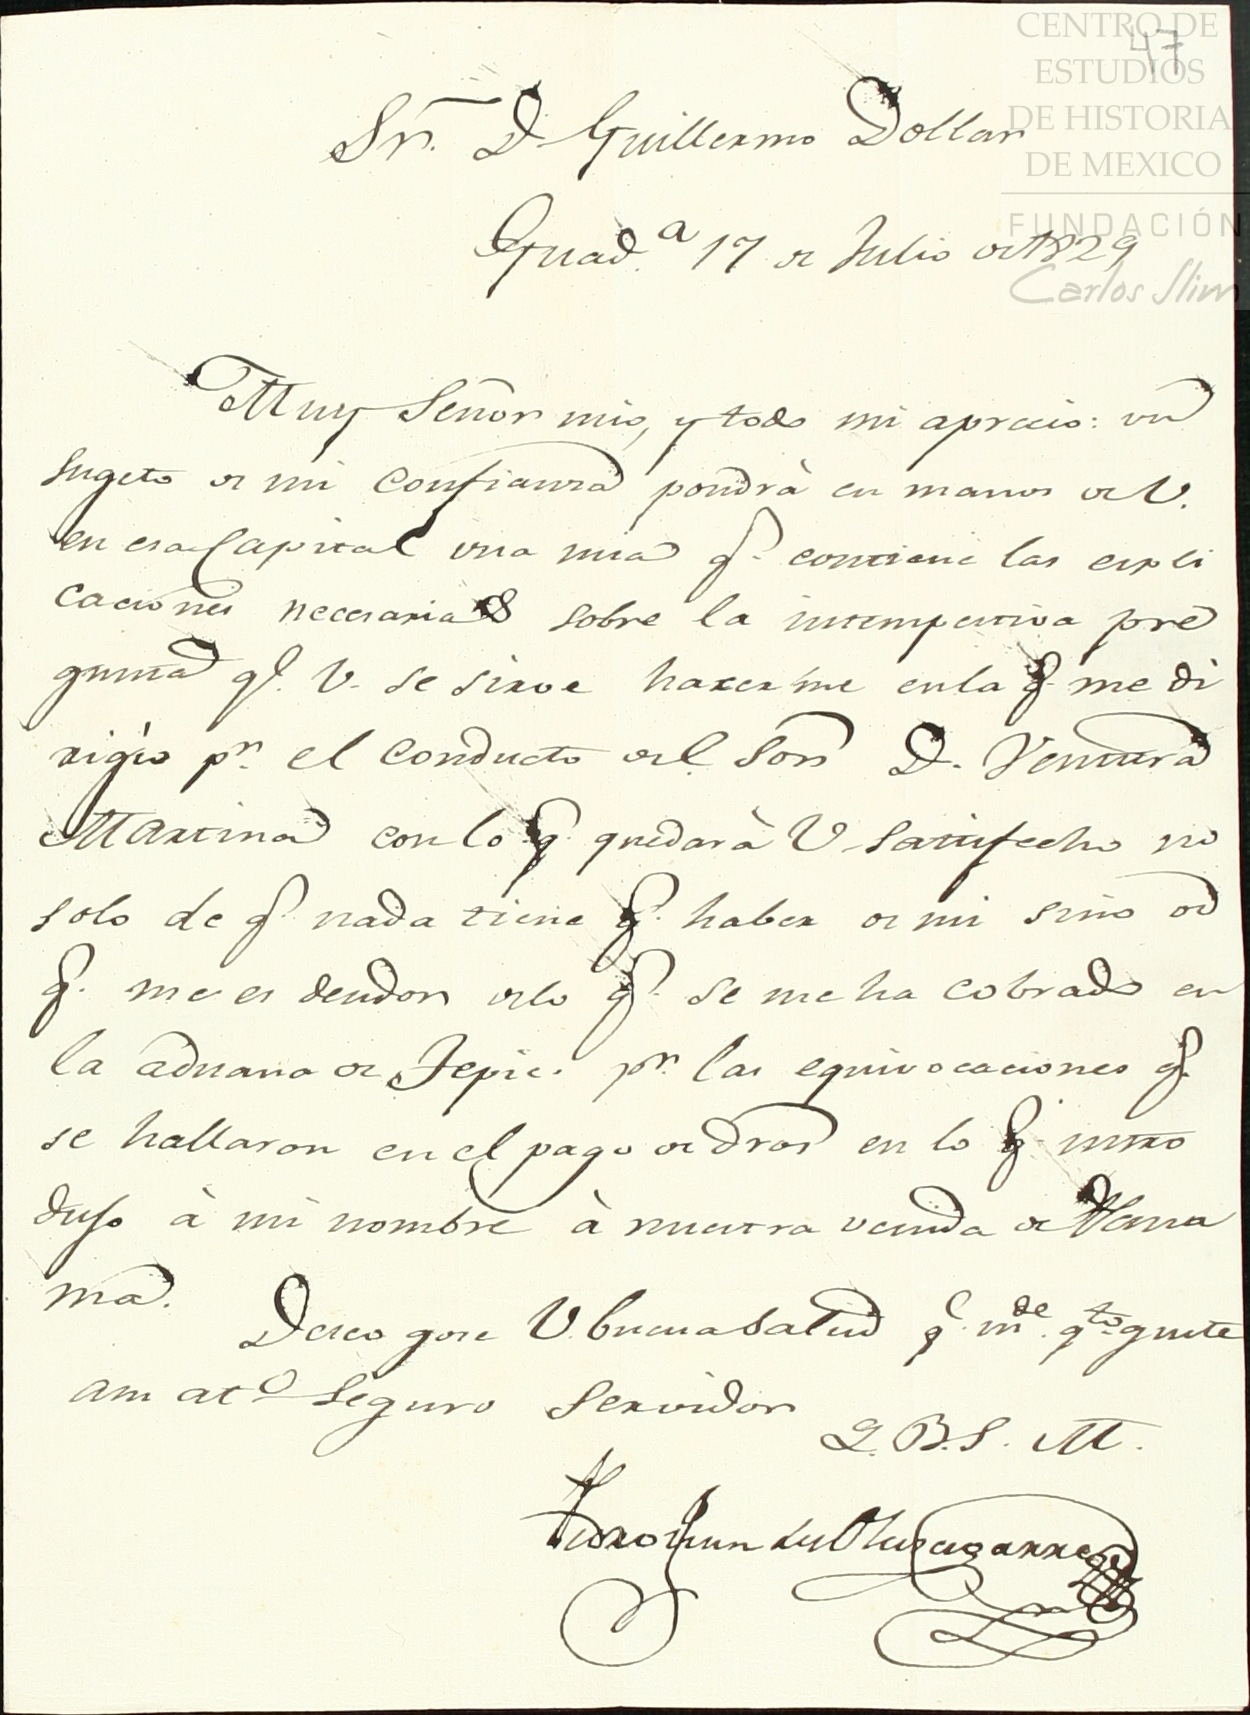 CENTRO DE
ESTUDIOS
DE HISTORIA
DE MEXICO
FUNDACIÓN
Carlos Slim
47
Sr. D. Guillermo Dollar
Guad.a 17 de Julio de 1829
Muy Señor mio, y todo mi aprecio: un
sugeto de mi confianza pondrà en manos de V.
en esa Capital una mia q.e contiene las expli
caciones necesarias sobre la intempestiva pre
gunta q.e V. se sirve hacerme en la q.e me di
rigio p.r el conducto del Sor D. Ventura
Martina con lo q.e quedarà V. satisfecho no
solo de q.e nada tiene q.e haber de mi sino de
q.e me es deudor de lo q.e se me ha cobrado en
la aduana de Tepic p.r las equivocaciones q.e
se hallaron en el pago de dros en lo q.e intro
dujo à mi nombre à nuestra venida de Pana
má.
Deseo gose V. buena salud q.e m.de q.to guste
a su at.o Seguro Servidor
Q. B. S. M.